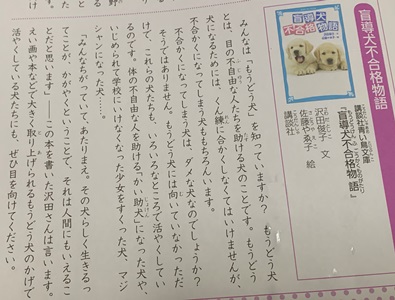 盲導犬不合格物語
盲導犬
不合格物語
『盲導犬不合格物語』
講談社青い鳥文庫
沢田俊子 文
佐藤やゑ子 絵
講談社
みなさんは「もうどう犬」を知っていますか? もうどう犬
とは、目の不自由な人たちを助ける犬のことです。もうどう
犬になるためには、くん練に合かくしなくてはいけませんが、
不合かくになってしまう犬ももちろんいます。
不合かくになってしまう犬は、ダメな犬なのでしょうか?
そうではありません。もうどう犬には向いていなかっただ
けで、これらの犬たちも、いろいろなところで活やくしてい
るのです。体の不自由な人を助ける「かい助犬」になった犬や、
いじめられて学校にいけなくなった少女をすくった犬、マジ
シャンになった犬……。
「みんなちがっていて、あたりまえ。その犬らしく生きるっ
てことが、かがやくということで、それは人間にもいえるこ
とだと思います」――この本を書いた沢田さんは言います。
えい画や本などで大きく取り上げられるもうどう犬のかげで
活やくしている犬たちにも、ぜひ目を向けてください。